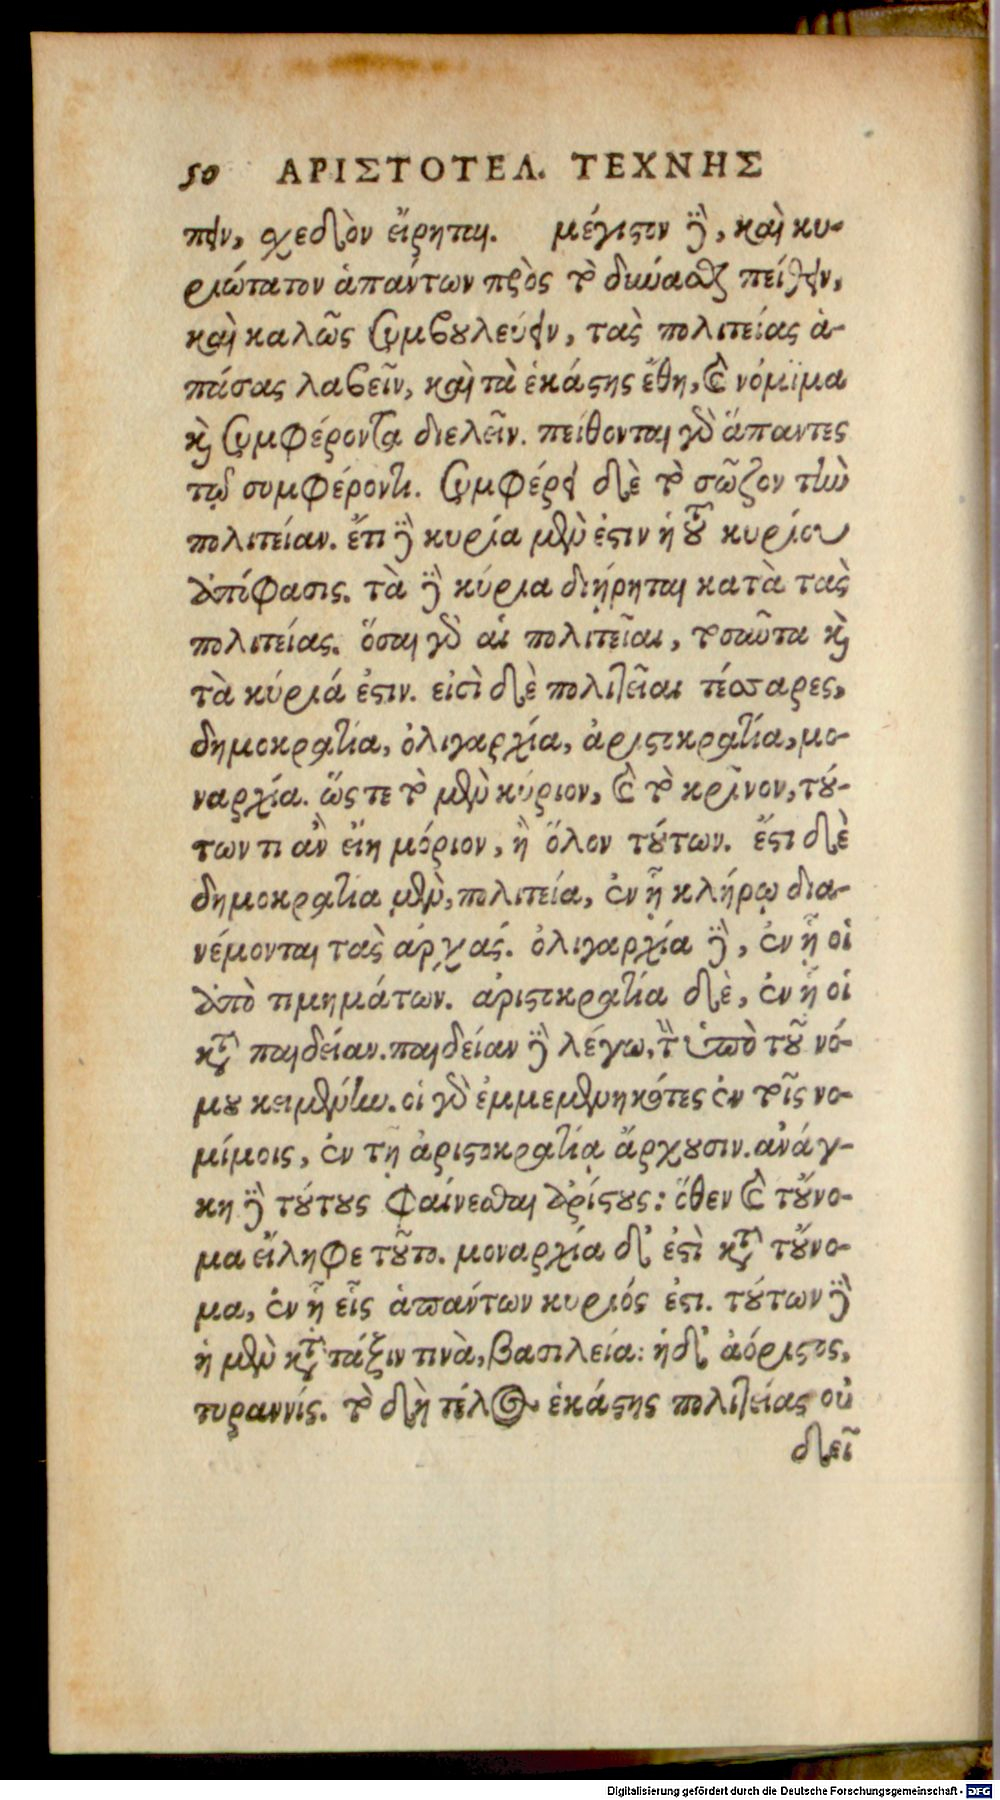 50 ΑΡΙΣΤΟΤΕΛ. ΤΕΧΝΗΣ
πειν, σχεδὸν εἴρηται. μέγιστον δὲ, καὶ κυ-
ριώτατον ἁπάντων πρὸς τὸ δύνασθαι πείθειν,
καὶ καλῶς συμβουλεύειν, τὰς πολιτείας ἁ-
πάσας λαβεῖν, καὶ τὰ ἑκάστης ἔθη, καὶ νόμϊμα
καὶ συμφέροντα διελεῖν. πείθονται γὰρ ἅπαντες
τῷ συμφέροντι. συμφέρει δὲ τὸ σῶζον τὴν
πολιτείαν. ἔτι δὲ κυρία μὲν ἐστιν ἡ τοῦ κυρίου
ἀπόφασις. τὰ δὲ κύρια διῄρηται κατὰ τὰς
πολιτείας. ὅσαι γὰρ αἱ πολιτεῖαι, τοσαῦτα καὶ
τὰ κύριά ἐστιν. εἰσὶ δὲ πολιτεῖαι τέσσαρες,
δημοκρατία, ὀλιγαρχία, ἀριστοκρατία, μο-
ναρχία. ὥς τε τὸ μὲν κύριον, καὶ τὸ κρῖνον, τού-
των τι ἂν εἴη μόριον, ἢ ὅλον τούτων. ἔστι δὲ
δημοκρατία μὲν, πολιτεία, ἐν ᾗ κλήρῳ δια-
νέμονται τὰς ἀρχάς. ὀλιγαρχία δὲ, ἐν ᾗ οἱ
ἀπὸ τιμημάτων. ἀριστοκρατία δὲ, ἐν ᾗ οἱ
κατὰ παιδείαν. παιδείαν δὲ λέγω, τὴν ὑπὸ τοῦ νό-
μου κειμένην. οἱ γὰρ ἐμμεμενηκότες ἐν τοῖς νο-
μίμοις, ἐν τῇ ἀριστοκρατίᾳ ἄρχουσιν. ἀνάγ-
κη δὲ τούτους φαίνεσθαι ἀρίστους: ὅθεν καὶ τοὔνο-
μα εἴληφε τοῦτο. μοναρχία δ' ἐστὶ κατὰ τοὔνο-
μα, ἐν ᾗ εἷς ἁπάντων κυριός ἐστι. τούτων δὲ
ἡ μὲν κατὰ τάξιν τινὰ, βασιλεία: ἡ δ' ἀόριστος,
τυραννίς. τὸ δὴ τέλος ἑκάστης πολιτείας οὐ
δεῖ
Digitalisierung gefördert durch die Deutsche Forschungsgemeinschaft - DFG